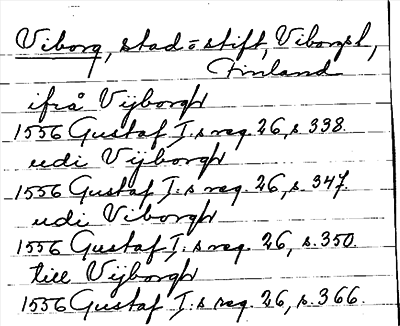 Viborg, stad = stift, Viborgsl,
Finland
ifrå Vijborgh
1556 Gustaf I:s reg. 26, s. 338.
udi Vijborgh
1556 Gustaf I:s reg. 26, s. 347.
udi Viborgh
1556 Gustaf I:s reg. 26, s. 350.
till Vijborgh
1556 Gustaf I:s reg. 26, s. 366.